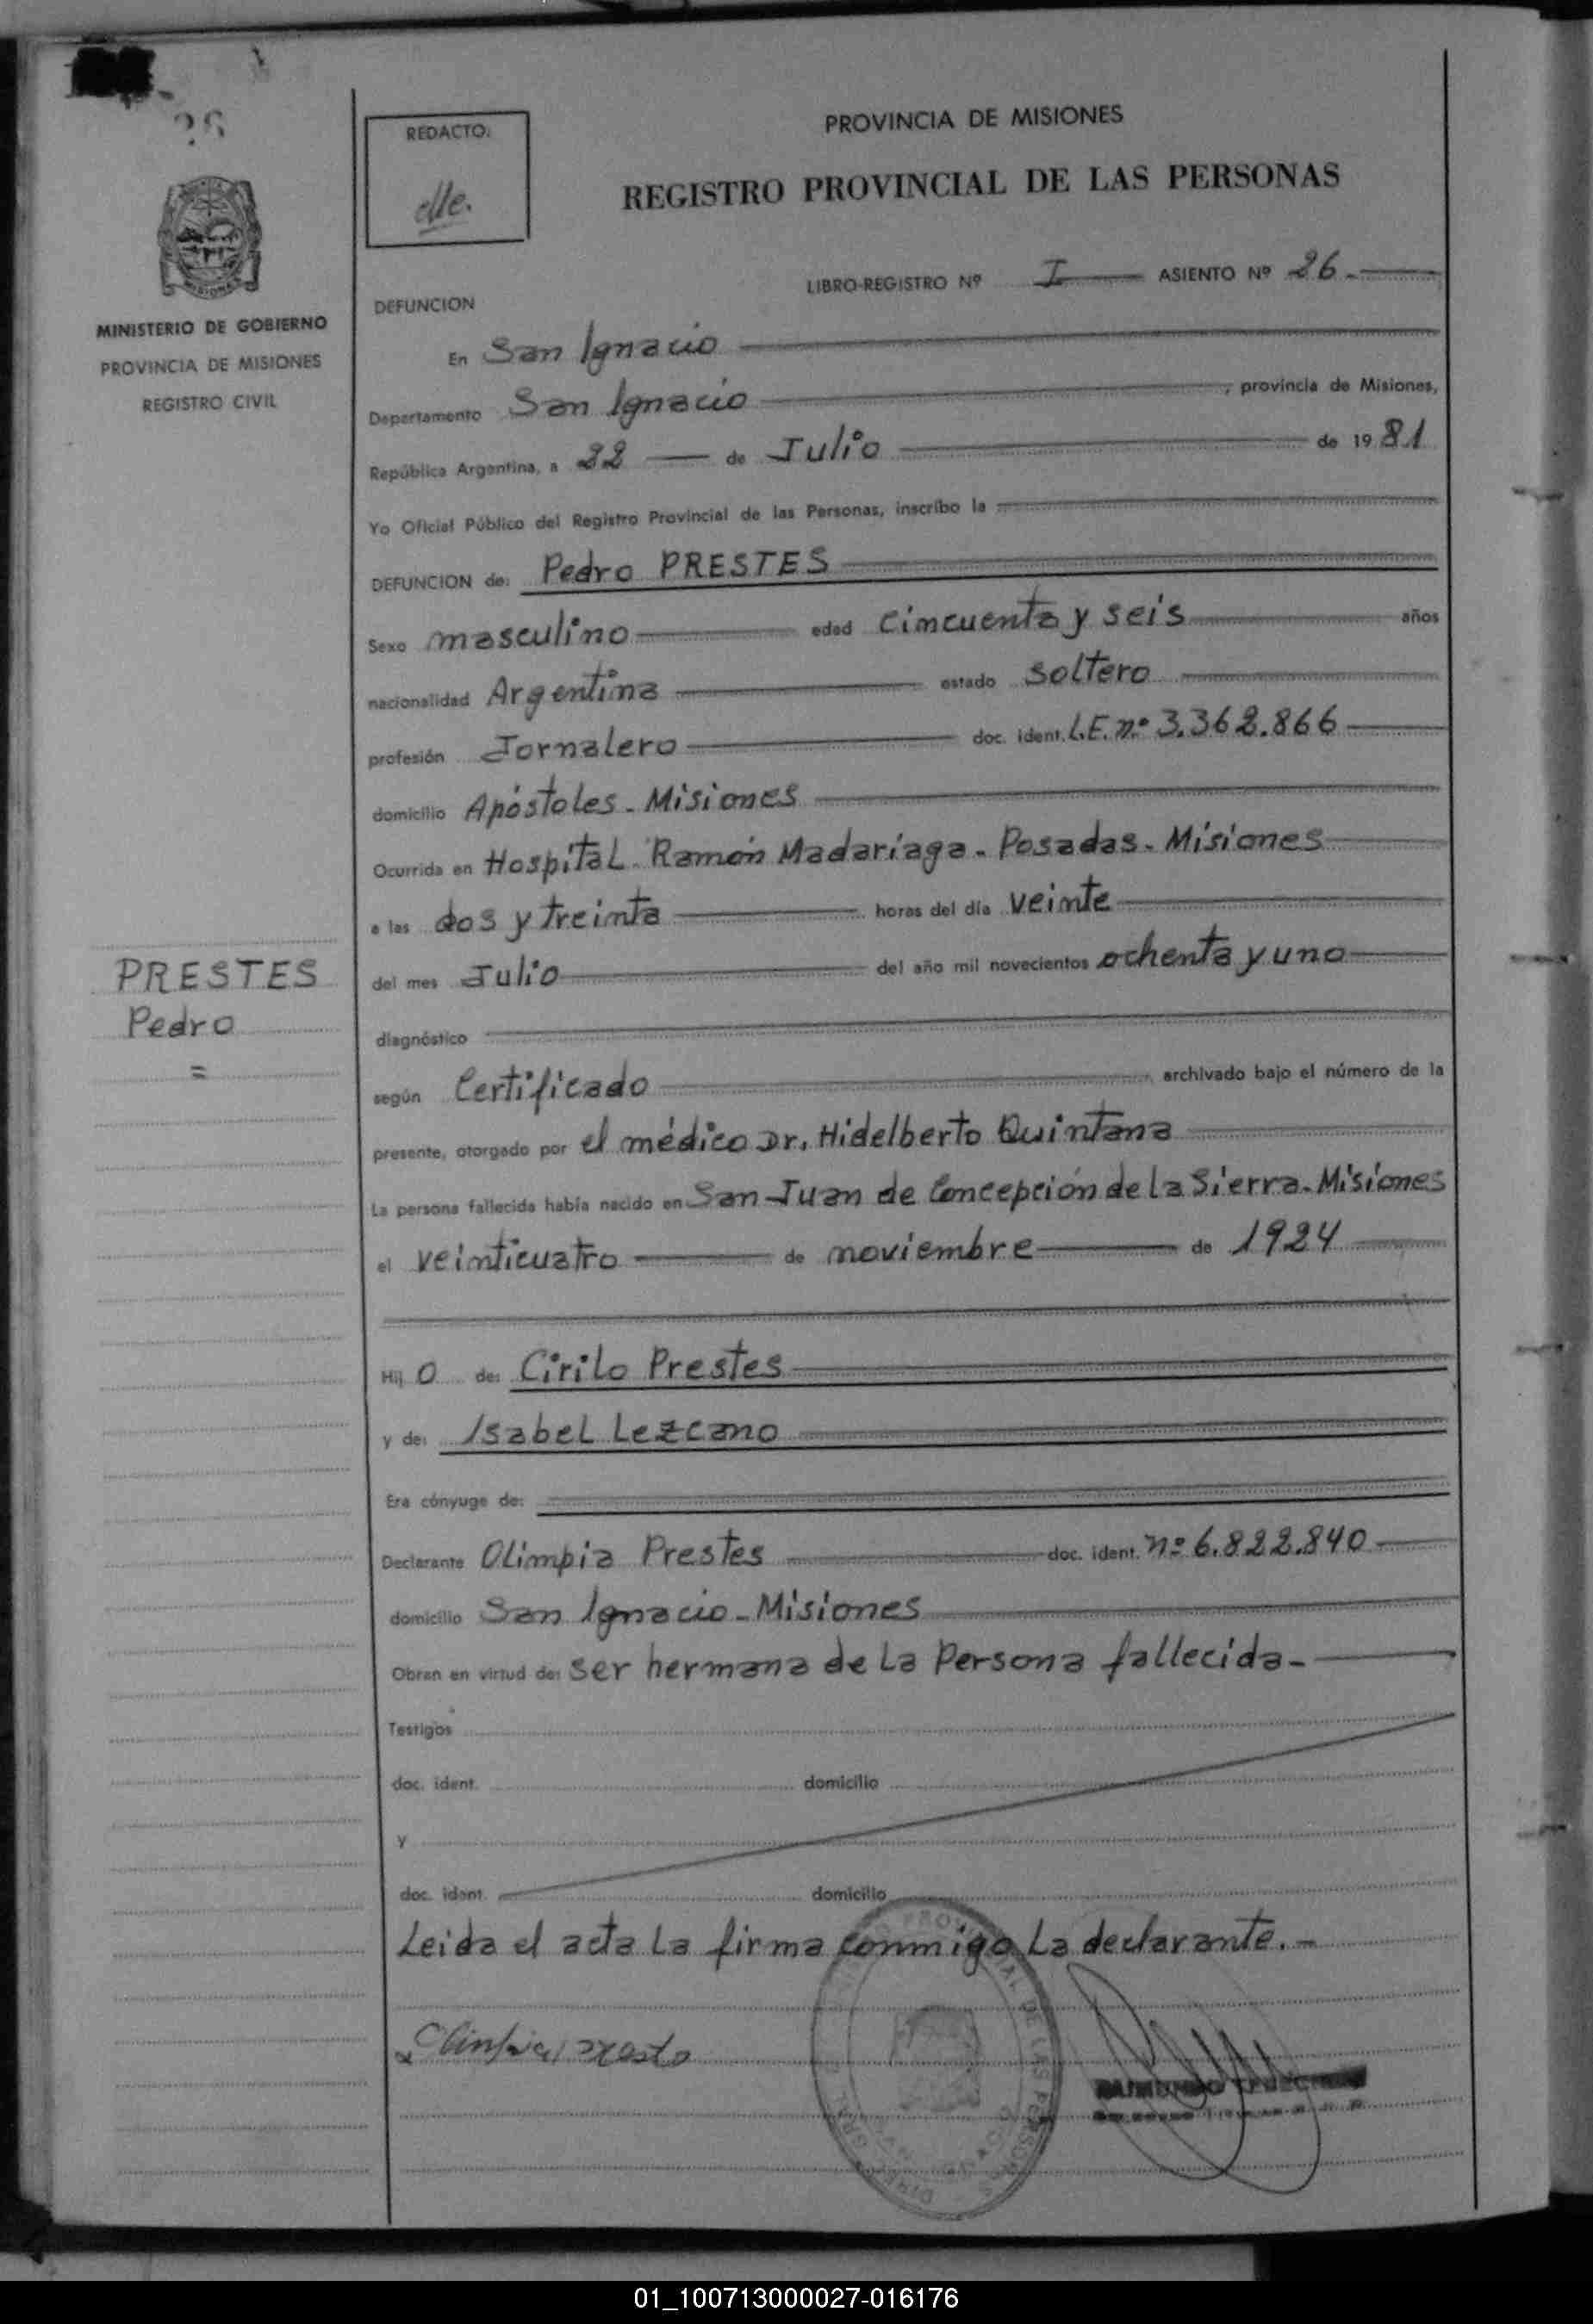 26
REDACTO:
PROVINCIA DE MISIONES
REGISTRO PROVINCIAL DE LAS PERSONAS
LIBRO-REGISTRO Nº I ASIENTO Nº 26.
MINISTERIO DE GOBIERNO
PROVINCIA DE MISIONES
REGISTRO CIVIL
DEFUNCION
En San Ignacio
Departamento San Ignacio, provincia de Misiones,
República Argentina, a 22 de Julio de 1981
Yo Oficial Público del Registro Provincial de las Personas, inscribo la
DEFUNCION de: Pedro PRESTES
Sexo masculino edad Cincuenta y seis años
nacionalidad Argentina estado soltero
profesión Jornalero doc. ident. L.E. nº 3.362.866
domicilio Apóstoles - Misiones
Ocurrida en Hospital Ramón Madariaga - Posadas - Misiones
a las dos y treinta horas del día veinte
del mes Julio del año mil novecientos ochenta y uno
PRESTES
Pedro
=
diagnóstico
según Certificado, archivado bajo el número de la
presente, otorgado por el médico Dr. Hidelberto Quintana
La persona fallecida había nacido en San Juan de Concepción de La Sierra - Misiones
el veinticuatro de noviembre de 1924
Hij o de: Cirilo Prestes
y de: Isabel Lezcano
Era cónyuge de:
Declarante Olimpia Prestes doc. ident. nº 6.822.840
domicilio San Ignacio - Misiones
Obran en virtud de: ser hermana de La Persona fallecida -
Testigos
doc. ident. domicilio
y
doc. ident. domicilio
Leida el acta La firma conmigo La declarante. -
01_100713000027-016176